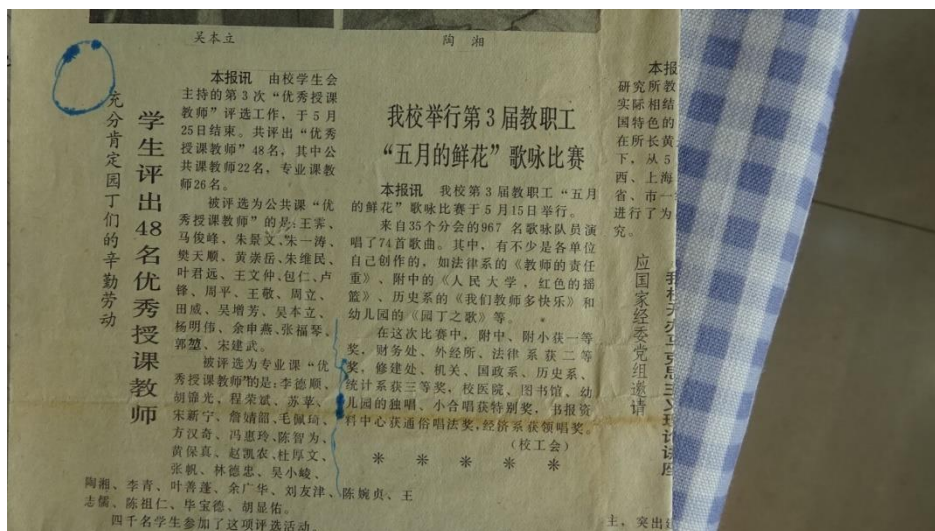 吴本立
陶 湘
充分肯定园丁们的辛勤劳动
学生评出48名优秀授课教师
本报讯 由校学生会
主持的第3次“优秀授课
教师”评选工作，于5月
25日结束。共评出“优秀
授课教师”48名，其中公
共课教师22名，专业课教
师26名。
被评选为公共课“优
秀授课教师”的是：王霁、
马俊峰、朱景文、朱一涛、
樊天顺、黄崇岳、朱维民、
叶君远、王文仲、包仁、卢
锋、周平、王敬、周立、
田威、吴增芳、吴本立、
杨明伟、余申燕、张福琴、
郭堃、宋建武。
被评选为专业课“优
秀授课教师”的是：李德顺、
胡锦光、程荣斌、苏苹、
宋新宁、詹婧韶、毛佩琦、
方汉奇、冯惠玲、陈智为、
黄保真、赵凯农、杜厚文、
张帆、林德忠、吴小崚、
陶湘、李青、叶善蓬、余广华、刘友津、陈婉贞、王
志儒、陈祖仁、毕宝德、胡显佑。
四千名学生参加了这项评选活动。
我校举行第3届教职工
“五月的鲜花”歌咏比赛
本报讯 我校第3届教职工“五月
的鲜花”歌咏比赛于5月15日举行。
来自35个分会的967 名歌咏队员演
唱了74首歌曲。其中，有不少是各单位
自己创作的，如法律系的《教师的责任
重》、附中的《人民大学，红色的摇
篮》、历史系的《我们教师多快乐》和
幼儿园的《园丁之歌》等。
在这次比赛中，附中、附小获一等
奖，财务处、外经所、法律系获二等
奖，修建处、机关、国政系、历史系、
统计系获三等奖，校医院、图书馆、幼
儿园的独唱、小合唱获特别奖，书报资
料中心获通俗唱法奖，经济系获领唱奖。
（校工会）
* * * * *
本报
研究所教
实际相结
国特色的
在所长黄
下，从5
西、上海
省、市一
进行了为
究。
应国家经委党组邀请
我校开办马克思主义理论讲座
主，突出